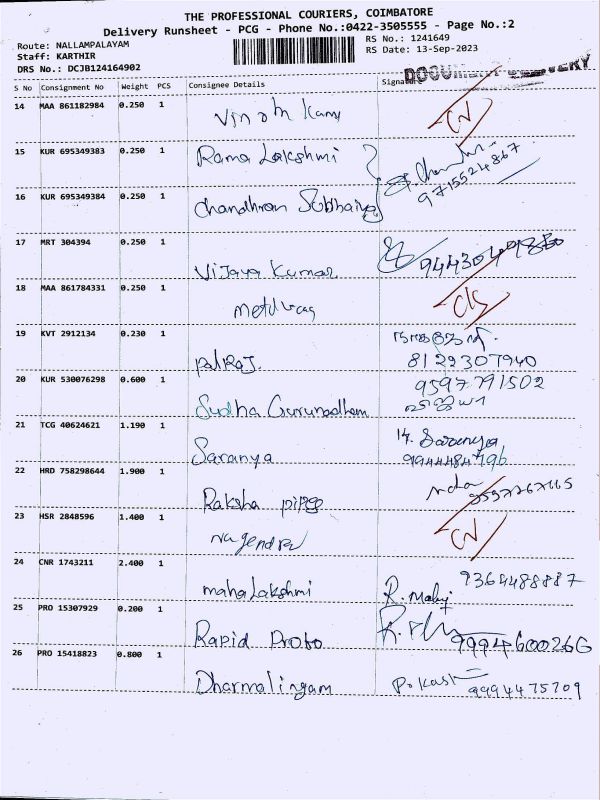 THE PROFESSIONAL COURIERS, COIMBATORE
Delivery Runsheet - PCG - Phone No.:0422-3505555 - Page No.:2
Route: NALLAMPALAYAM
RS No.: 1241649
Staff: KARTHIR
RS Date: 13-Sep-2023
DRS No.: DCJB124164902
DOCUMENT DELIVERY
S No Consignment No Weight PCS Consignee Details Signature
14 MAA 861182984 0.250 1
15 KUR 695349383 0.250 1 Rama Lakshmi
16 KUR 695349384 0.250 1 Chandhran Subbaiya
9715524867
17 MRT 304394 0.250 1 Vijaya Kumar
18 MAA 861784331 0.250 1
19 KVT 2912134 0.230 1 paliraj.
8122307940
20 KUR 530076298 0.600 1 Sudha Gurunadham
9597791502
விஜயா
21 TCG 40624621 1.190 1 Saranya
14. Saranya
9944484796
22 HRD 758298644 1.900 1 Raksha
23 HSR 2848596 1.400 1
24 CNR 1743211 2.400 1 mahaLakshmi
9364488887
25 PRO 15307929 0.200 1 Rapid Proto
9994600266
26 PRO 15418823 0.800 1 Dharmalingam
9994475709